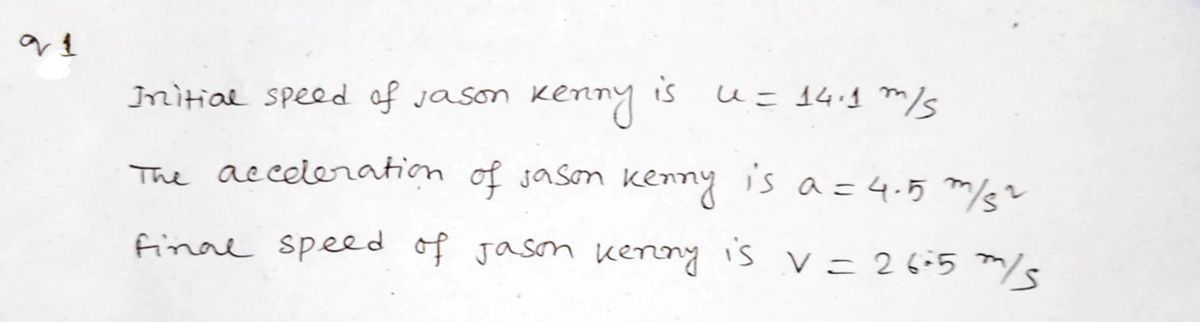 q 1
Initial speed of Jason Kenny is u = 14.1 m/s
The acceleration of Jason Kenny is a = 4.5 m/s²
final speed of Jason Kenny is v = 26.5 m/s